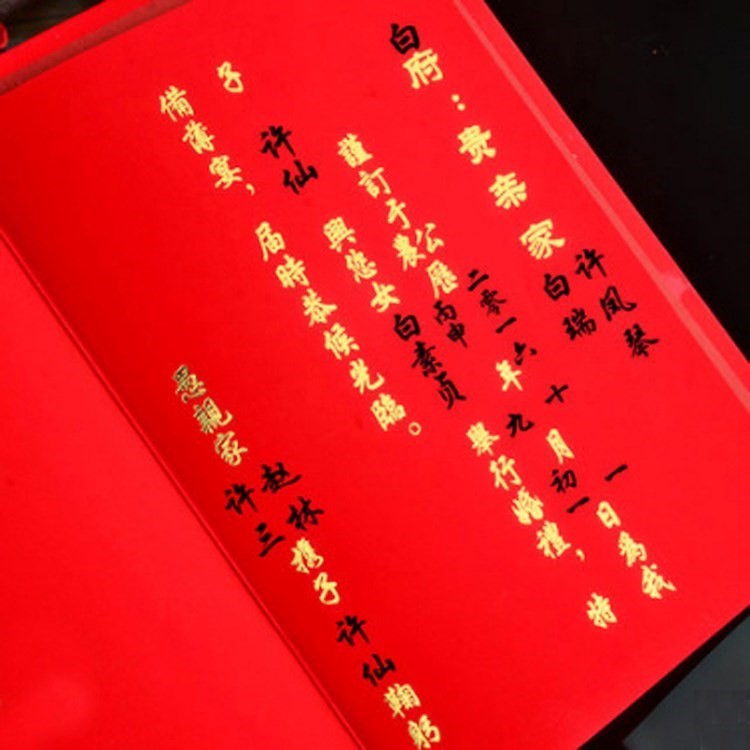 白府：贵亲家
许凤琴
白瑞
謹訂于
公
農
曆
二零一六
丙申
年
十
九
月
一
初一
日為我
子许仙與您女白素贞舉行婚禮，特
備薄宴，届時恭候光臨。
愚親家
赵林
许三
携子许仙鞠躬